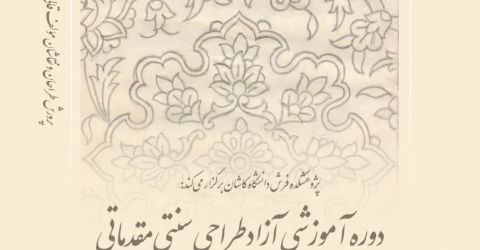 پژوهشکده فرش دانشگاه کاشان برگزار می‌کند:
دوره آموزشی آزاد طراحی سنتی مقدماتی
پرورش طراحان و نقاشان مؤلف